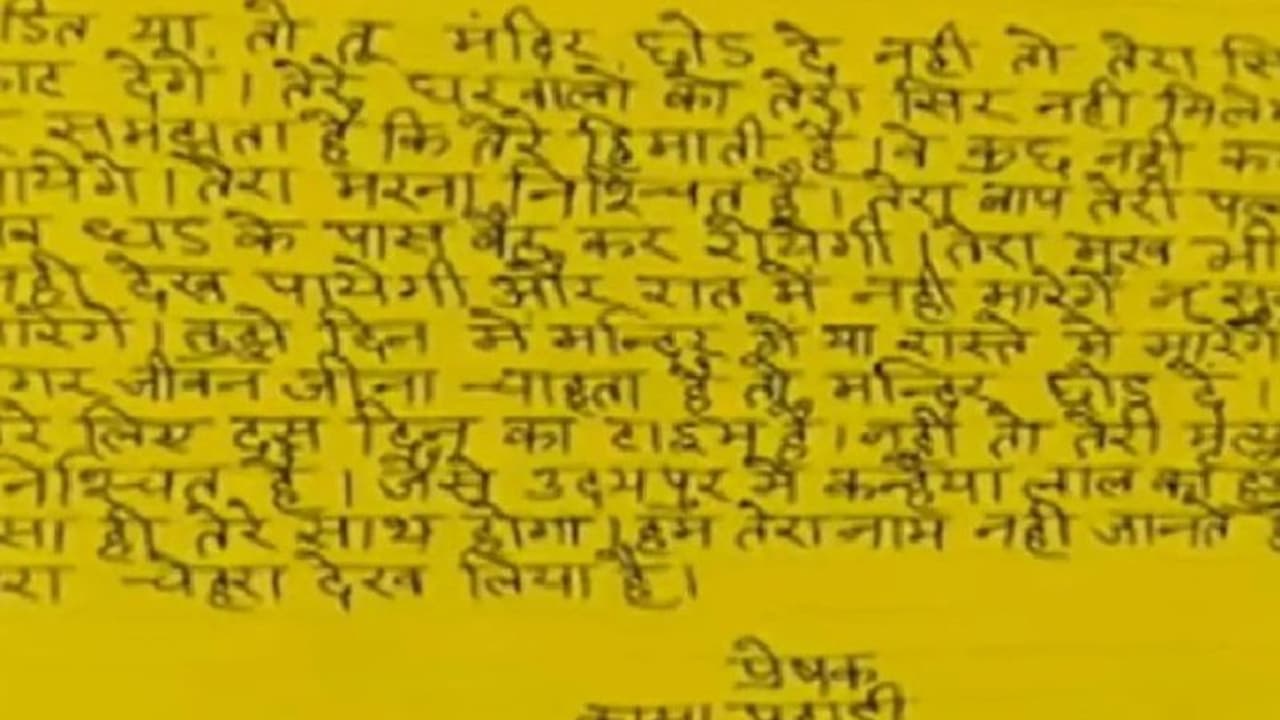 डित या तो तू मंदिर छोड दे नही तो तेरा सि
देगे । तेरे घरवालो को तेरा सिर नही मिले
समझता है कि तेरे हिमाती है । वे कुछ नही क
पायेगे । तेरा मरना निश्चित है । तेरा बाप तेरी
धड के पास बैठ कर रोयेगी । तेरा मुख भी
नही देख पायेगी और रात मे नही मारेगे
मारेगे । तुझे दिन मे मन्दिर मे या रास्ते मे मारेगे
गर जीवन जीना चाहता है तो मन्दिर छोड दे ।
रे लिए दस दिन का टाइम है । नही तो तेरी मृत्यु
निश्चित है । जैसे उदयपुर मे कन्हैया लाल का
सा ही तेरे साथ होगा । हम तेरा नाम नही जानते
रा चेहरा देख लिया है ।
प्रेषक